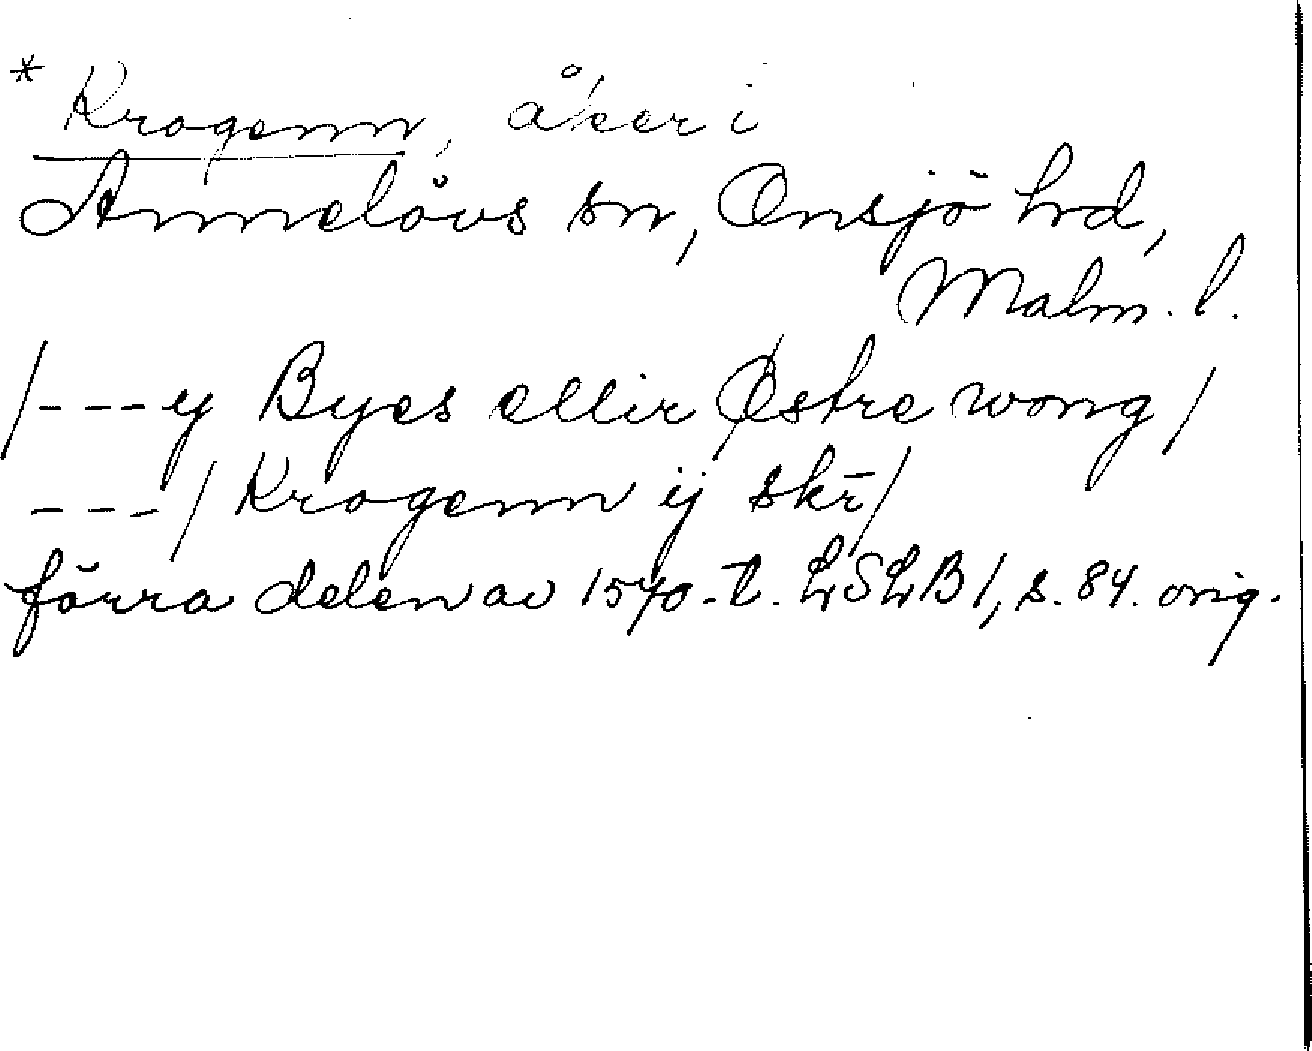 * Krogenn, åker i
Annelövs sn, Onsjö hrd,
Malm. l.
/---ij Byes ellir Østre wong/
---/ Krogenn ij skr̄/
förra delen av 1570-t. LSLB 1, s. 84. orig.